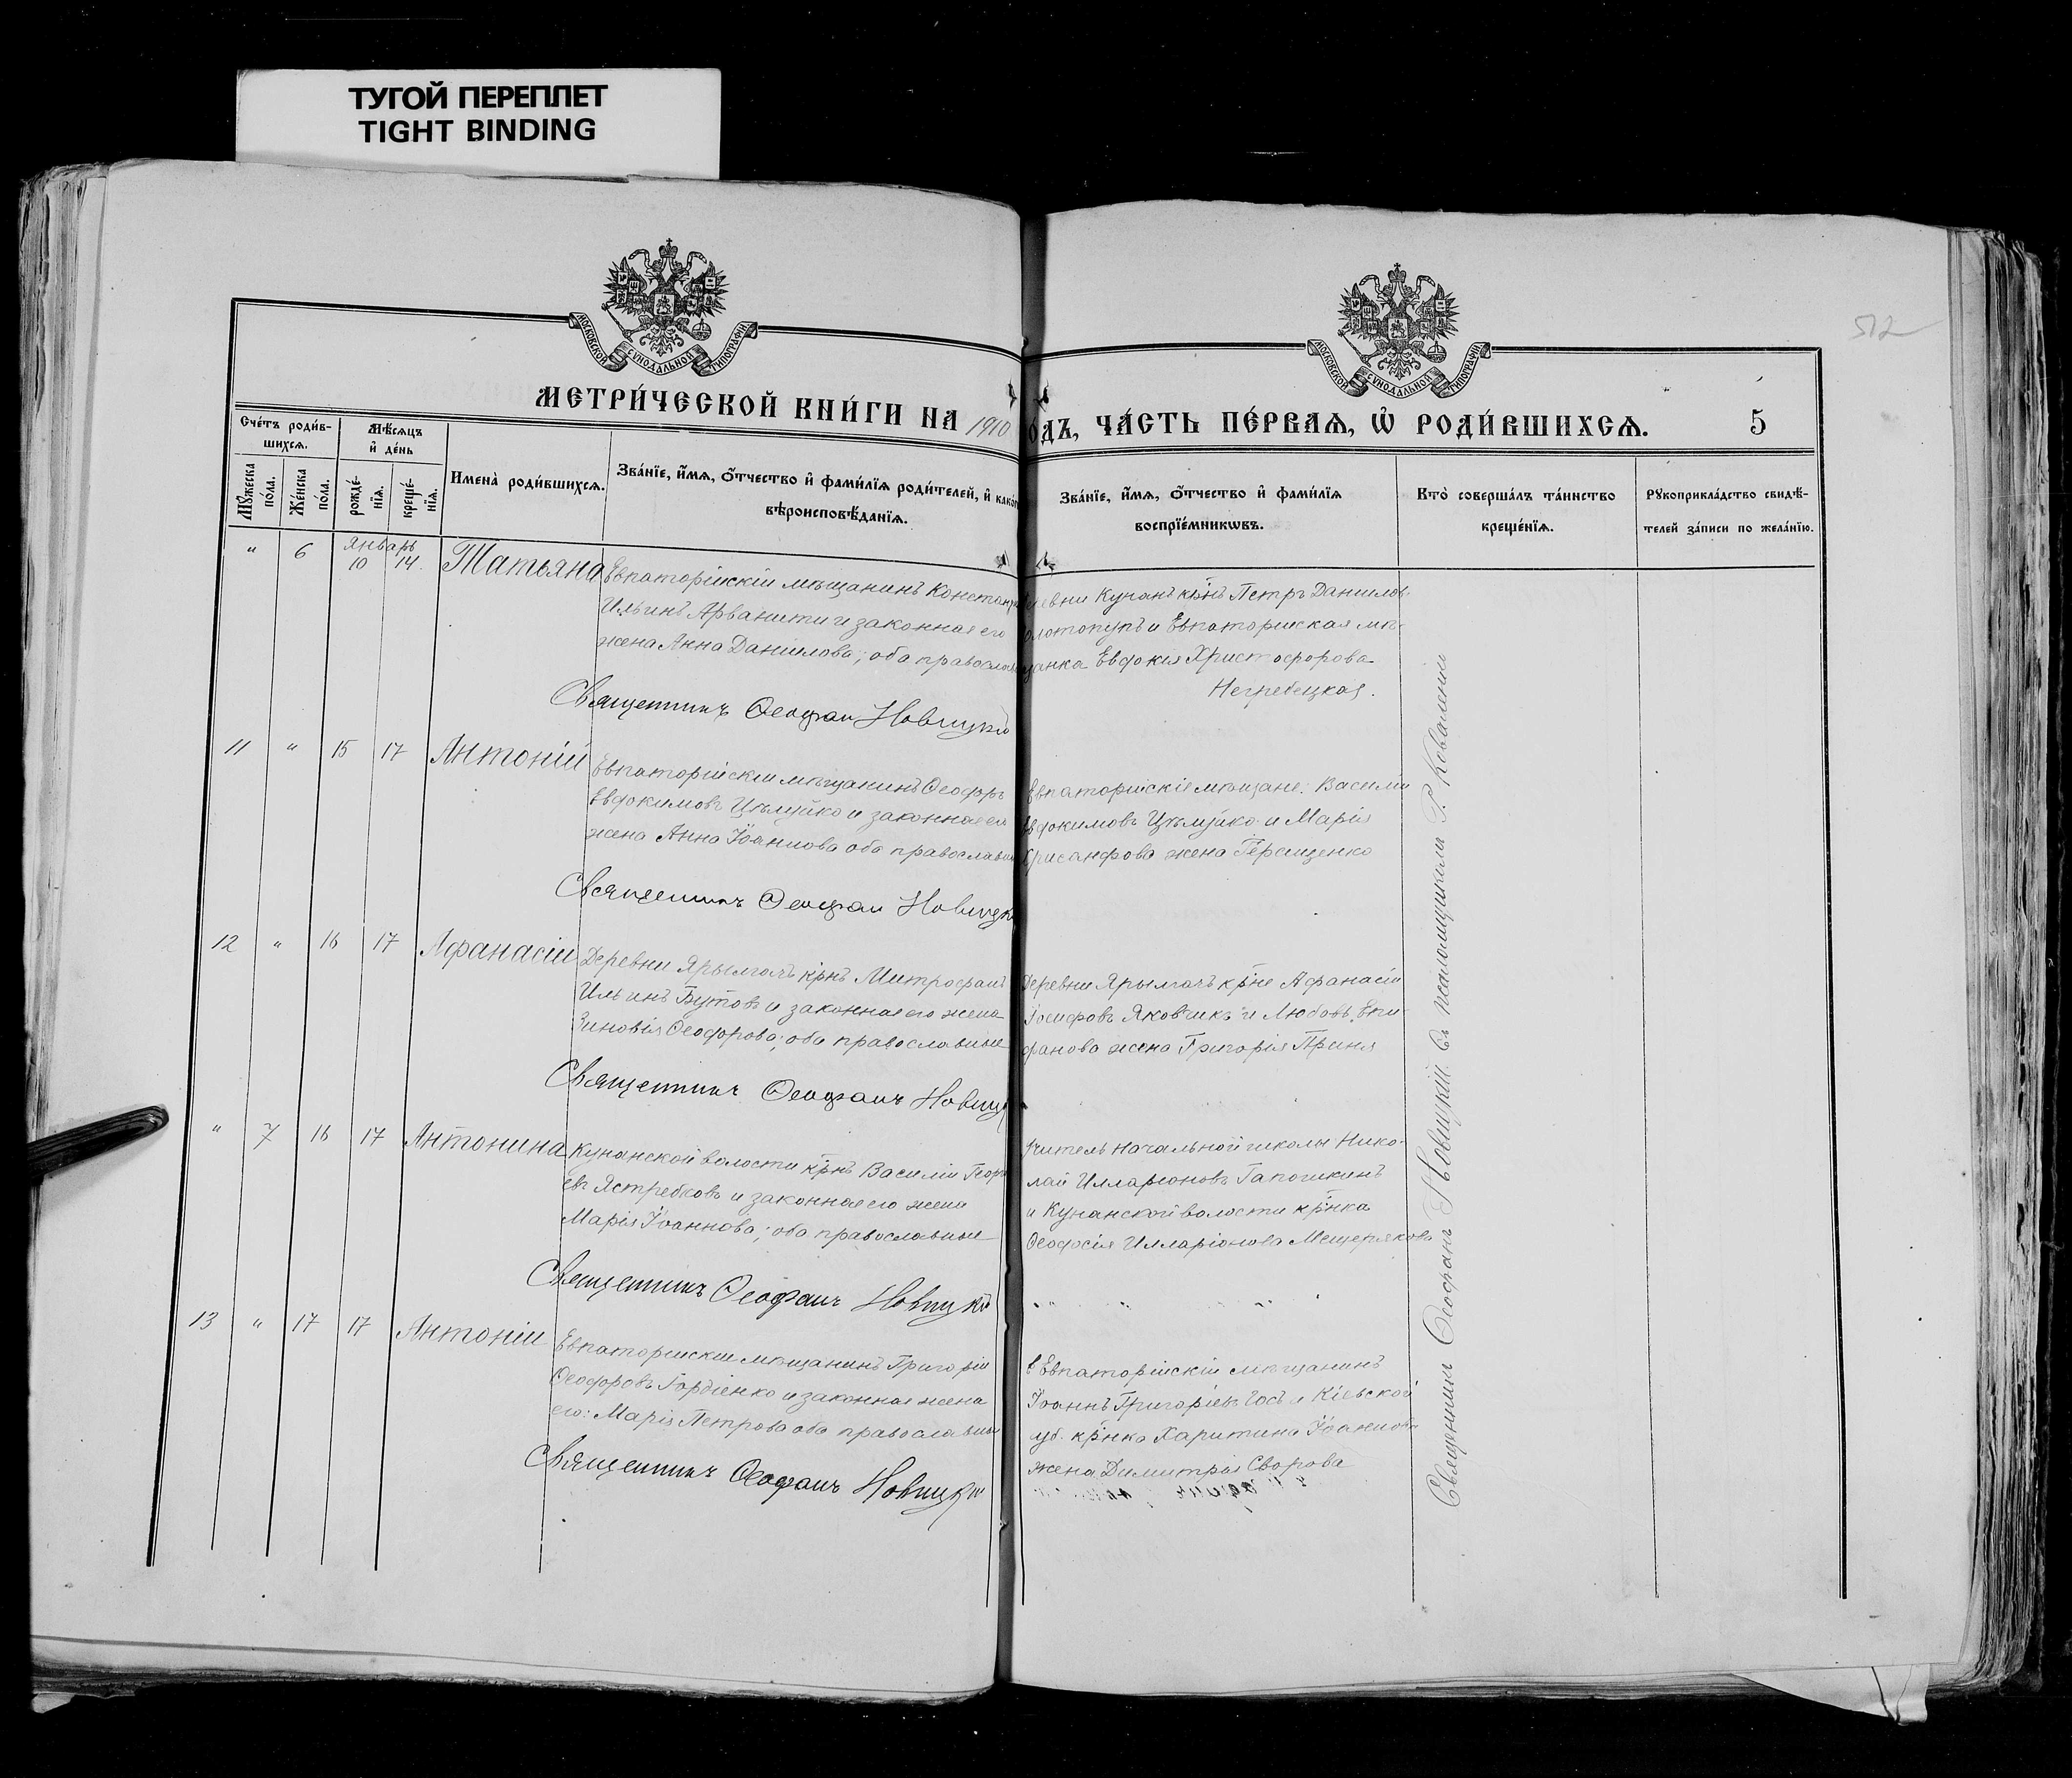 ТУГОЙ ПЕРЕПЛЕТ
TIGHT BINDING
512
МОСКОВСКОЙ СѴНОДАЛЬНОЙ ТИПОГРАФІИ
МОСКОВСКОЙ СѴНОДАЛЬНОЙ ТИПОГРАФІИ
МЕТРИ́ЧЕСКОЙ КНИ́ГИ НА 1910
ОДЪ, ЧА́СТЬ ПЕ́РВАЯ, Ѿ РОДИ́ВШИХСѦ. 5
Сче́тъ роди́в-
шихсѧ.
Мѣ́сѧцъ
и҆ де́нь
Мꙋ́жеска
по́ла.
Же́нска
по́ла.
рожде́-
нїѧ.
креще́-
нїѧ.
Имена̀ роди́вшихсѧ.
Зва́нїе, и҆́мѧ, ѻ҆́тчество и҆ фами́лїѧ роди́телей, и҆ како́г
вѣроисповѣ́данїѧ.
Зва́нїе, и҆́мѧ, ѻ҆́тчество и҆ фами́лїѧ
воспрїе́мникѡвъ.
Кто̀ соверша́лъ та́инство
креще́нїѧ.
Рꙋкоприкла́дство свидѣ́-
телей за́писи по жела́нїю.
" 6 Январь
10 14. Татьяна
Евпаторійскій мѣщанинъ Констан
Ильинъ Арванити и законная его
жена Анна Даніилова; оба православ
Священникъ Ѳеофан Новицкій
евни Кунанъ кр̃нъ Петръ Даниловъ
олотопупъ и Евпаторійская мѣ-
щанка Евфокія Христофорова
Негребецкая.
11 " 15 17 Антоній
Евпаторійскій мѣщанинъ Ѳеодоръ
Евдокимовъ Цѣлуйко и законная его
жена Анна Іоаннова оба православн
Священникъ Ѳеофан Новицк
Евпаторійскіе мѣщане: Василій
Евдокимовъ Цѣлуйко и Марія
Хрисанфова жена Геращенко
12 " 16 17 Афанасій
Деревни Ярылгачъ кр̃нъ Митрофанъ
Ильинъ Бутовъ и законная его жена
Зиновія Ѳеодорова; оба православные
Священникъ Ѳеофанъ Новиц
Деревни Ярылгачъ кр̃не Афанасій
Іосифовъ Яковчикъ и Любовь Епи-
фанова жена Григорія
" 7 16 17 Антонина
Кунанской волости кр̃нъ Василій Георгі
евъ Ястребковъ и законная его жена
Марія Іоаннова; оба православные
Священникъ Ѳеофанъ Новицкій
Учитель начальной школы Нико-
лай Илларіоновъ Гапошкинъ
и Кунанской волости кр̃нка
Ѳеодосія Илларіонова Мещерякова
13 " 17 17 Антоній
Евпаторійскій мѣщанинъ Григорій
Ѳеодоровъ Гордіенко и законная жена
его: Марія Петрова оба православны
Священникъ Ѳеофанъ Новицкій
Евпаторійскій мѣщанинъ
Іоаннъ Григоріевъ и Кіевской
губ. кр̃нка Харитина Іоаннова
жена Димитрія Сворова
Священникъ Ѳеофанъ Новицкій. Съ псаломщикомъ Коваленко